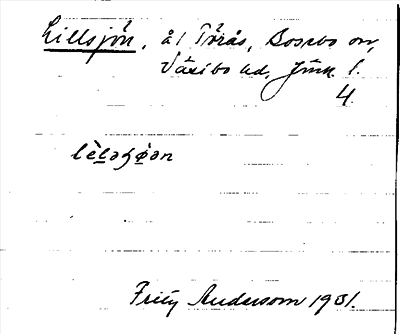 Lillsjön, å l Törås, Bosebo sn,
Västbo hd, Jönk. l.
4.
lè̱lǝʂø̱ǝn
Fritz Anderson 1931.